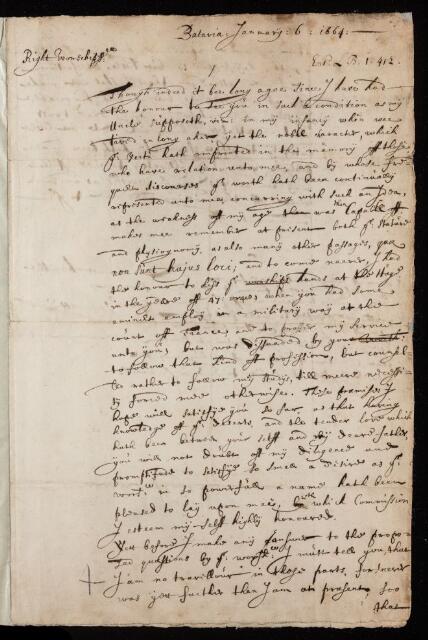 Batavia: January: 6: 1664:
Right Worshipp:ll
Ent'd L. B. 1. 412.
Though indeed it bee long agoe since I have had
the honour to see you in such a condition as my
Uncle supposeth, viz: in my infancy when wee
lived in long after yet the noble caracter, which
yr. hath imprinted in the memory off those
who have relation unto mee, and by whose
discourses yr. worth hath been continually
represented unto mee, concurring with such an Idea,
as the weakness off my age then was capable off
makes mee remember at present both yr. stature
and physiognomy, as also many other passages, quae
non sunt hujus loci; and to come nearer, I had
the honour to kiss yr. worships hands at the Hage
in the yeare off 47; when you had some
eminent employ in a military way at the
court off and to proffer my service
unto you; but was disswaded by your
to follow that kind off profession, but
rather to follow my studys, till meere necessi-
ty forced mee otherwise. These promises I
hope will satisfye you so far, as that having
knowledge off yr. deserts, and the tender love which
hath been between your selff and my deare father,
you will not doubt off my diligence and
promptitude to satisfye so small a desire as yr.
wor:p in so powerfull a name hath been
pleased to lay upon mee; with which Commission
I esteem my-self highly honoured.
Yet before I make any answer to the propo-
sed questions by yr. worsh: I must tell you, that
I am no travellour in those parts, for never
was yett further then I am at present, soo
that